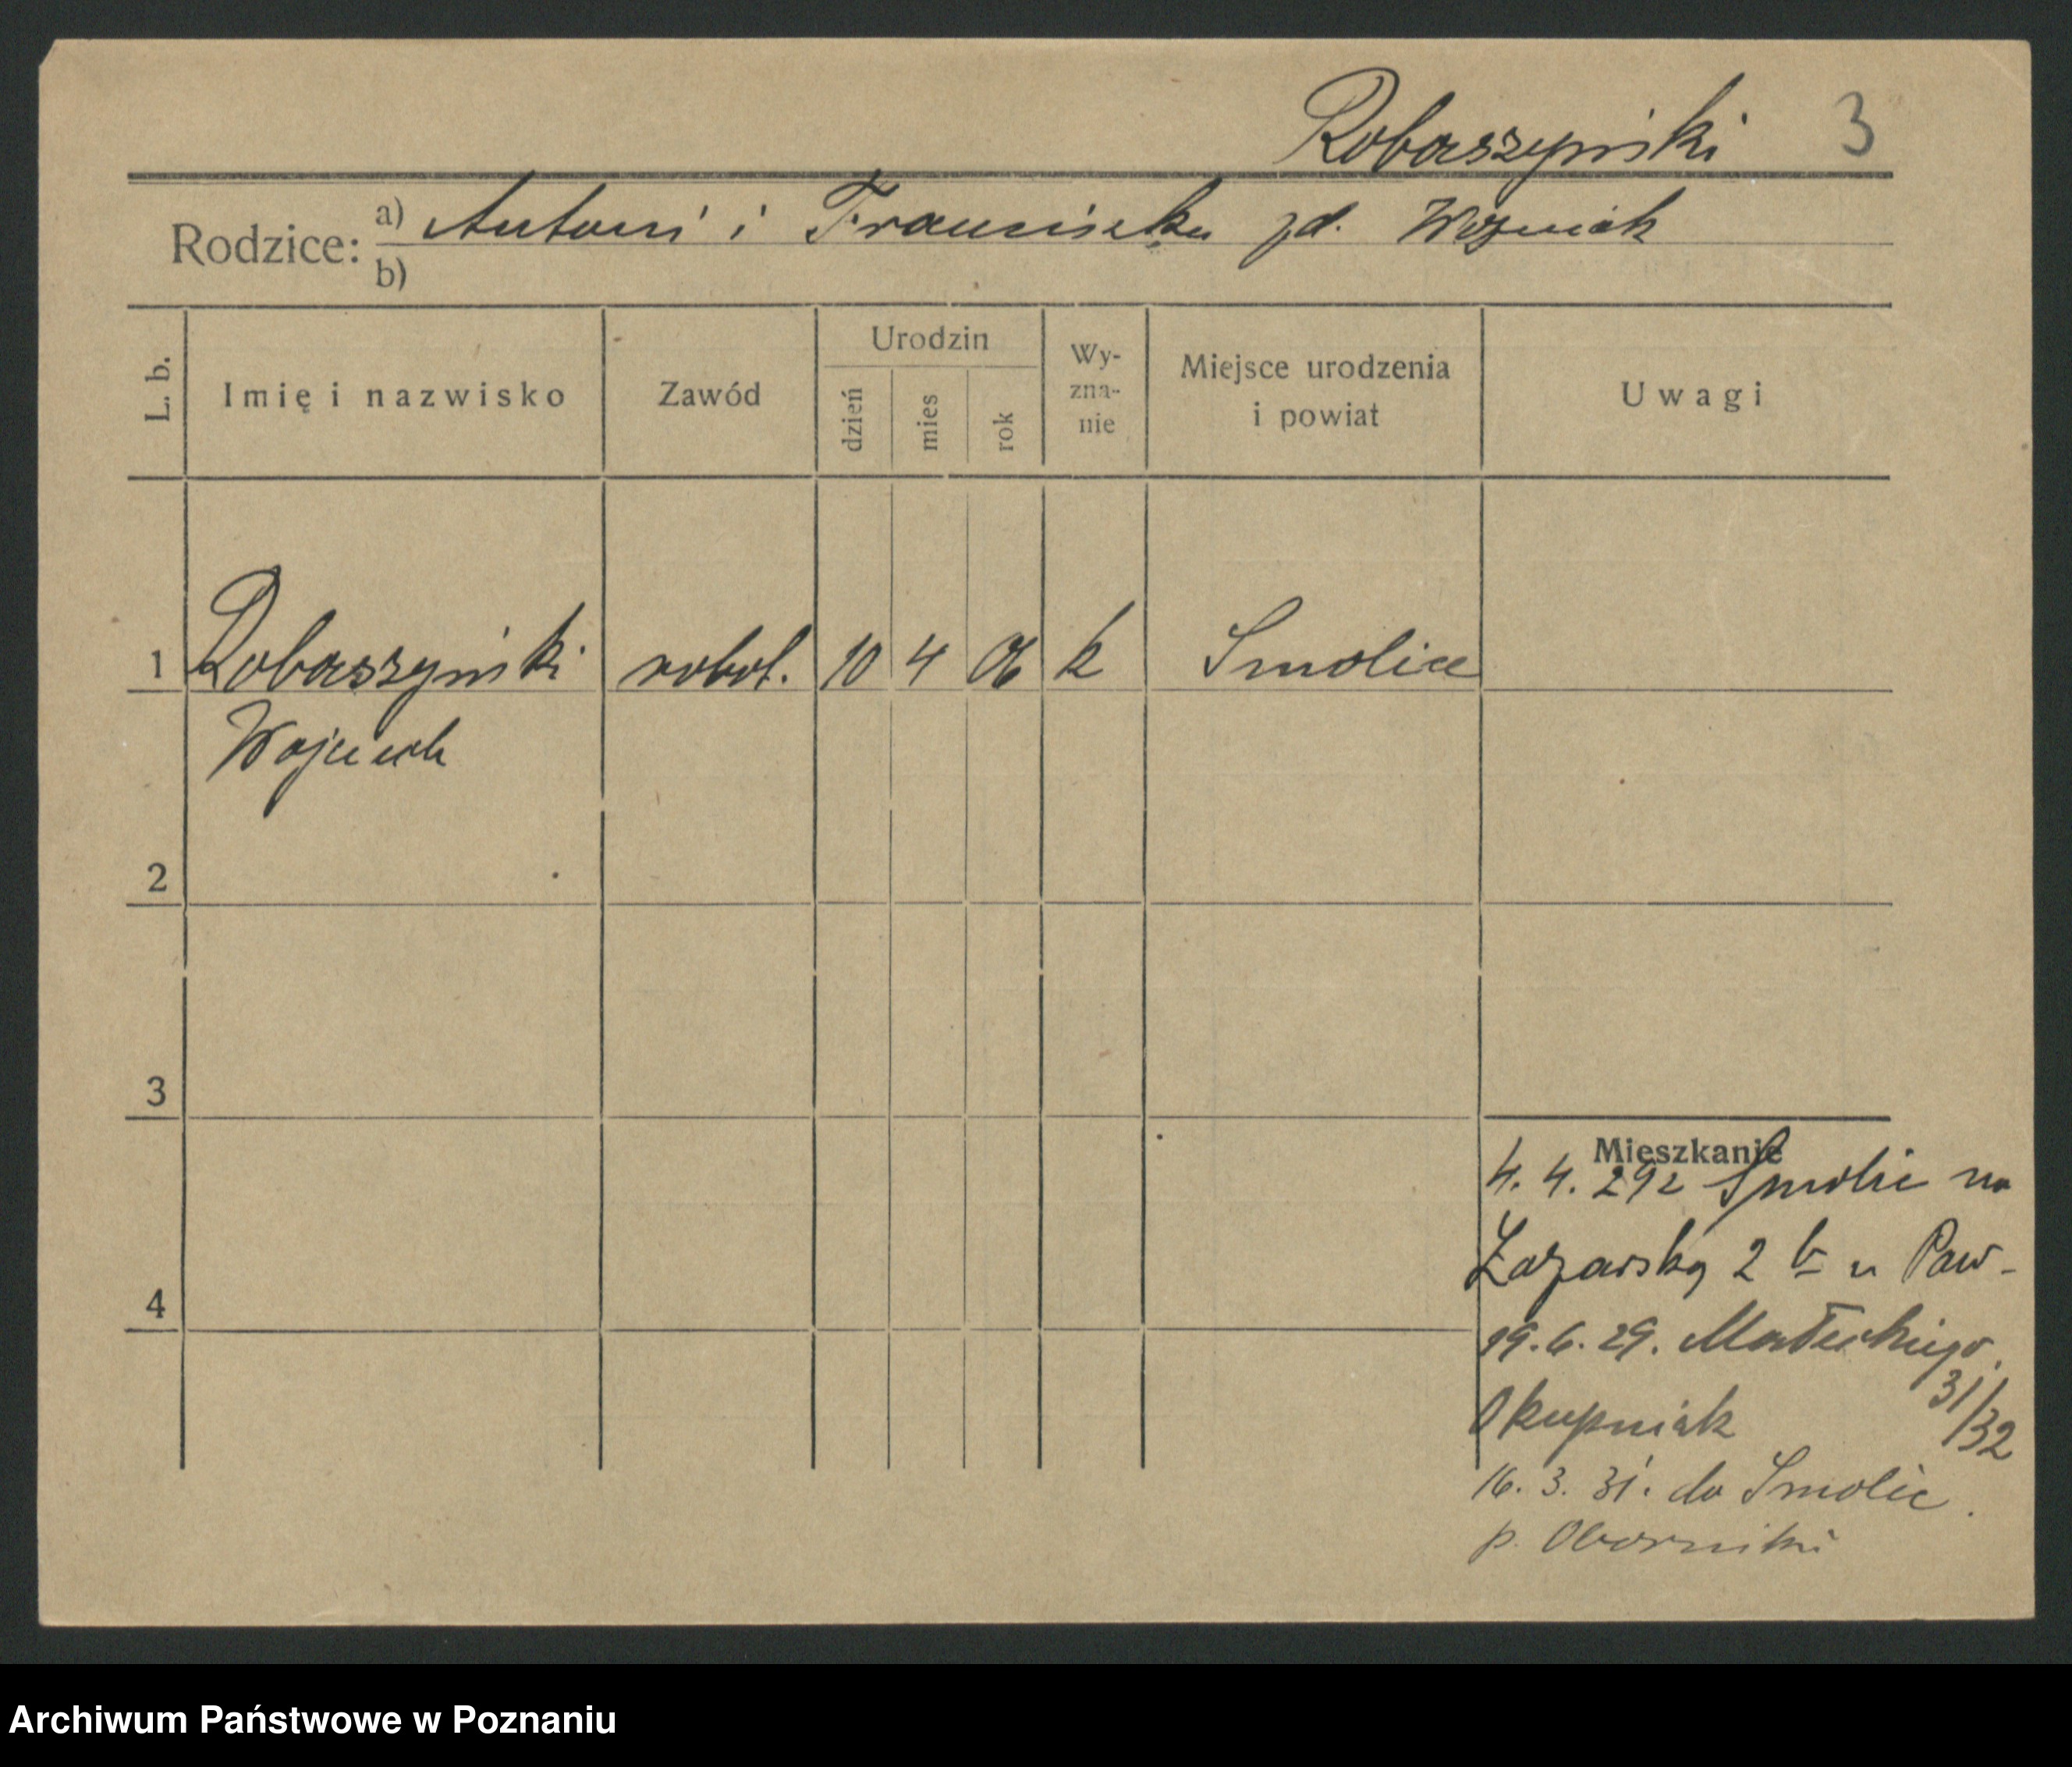 Robaszyński 3
Rodzice: a) Antoni i Franciszka zd. Woźniak
b)
L. b. Imię i nazwisko Zawód Urodzin dzień mies rok Wy-zna-nie Miejsce urodzenia i powiat Uwagi
1 Robaszyński robot. 10 4 06 k Smolice
Wojciech
2
3
Mieszkanie
4. 4. 29 z Smolic na
Łazarską 2 b u Paw-
4
19. 6. 29. Małeckiego
31/32
Okupniak
16. 3. 31. do Smolic.
p. Oborniki
Archiwum Państwowe w Poznaniu